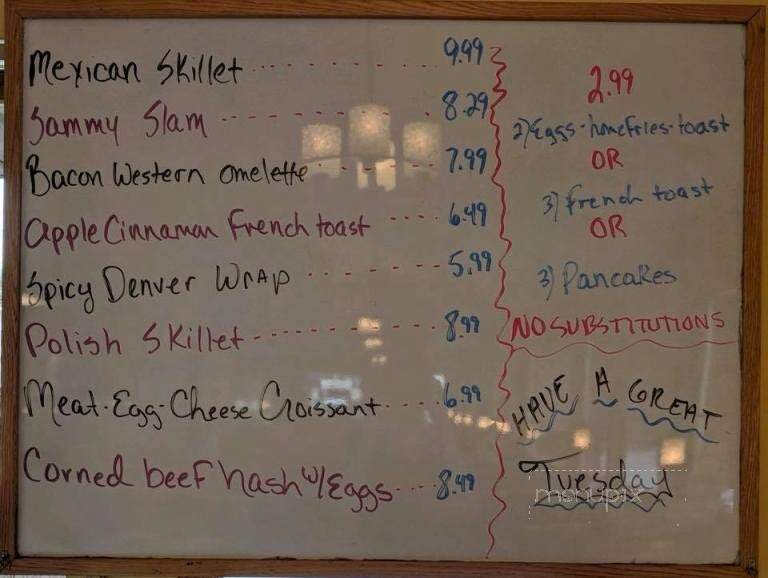 Mexican Skillet 9.99
Sammy Slam 8.29
Bacon Western omelette 7.99
Apple Cinnaman French toast 6.49
Spicy Denver Wrap 5.99
Polish Skillet 8.99
Meat-Egg-Cheese Croissant 6.99
Corned beef hash w/Eggs 8.49
2.99
2) Eggs-homefries-toast
OR
3) french toast
OR
3) Pancakes
NO SUBSTITUTIONS
HAVE A GREAT
Tuesday
menupix